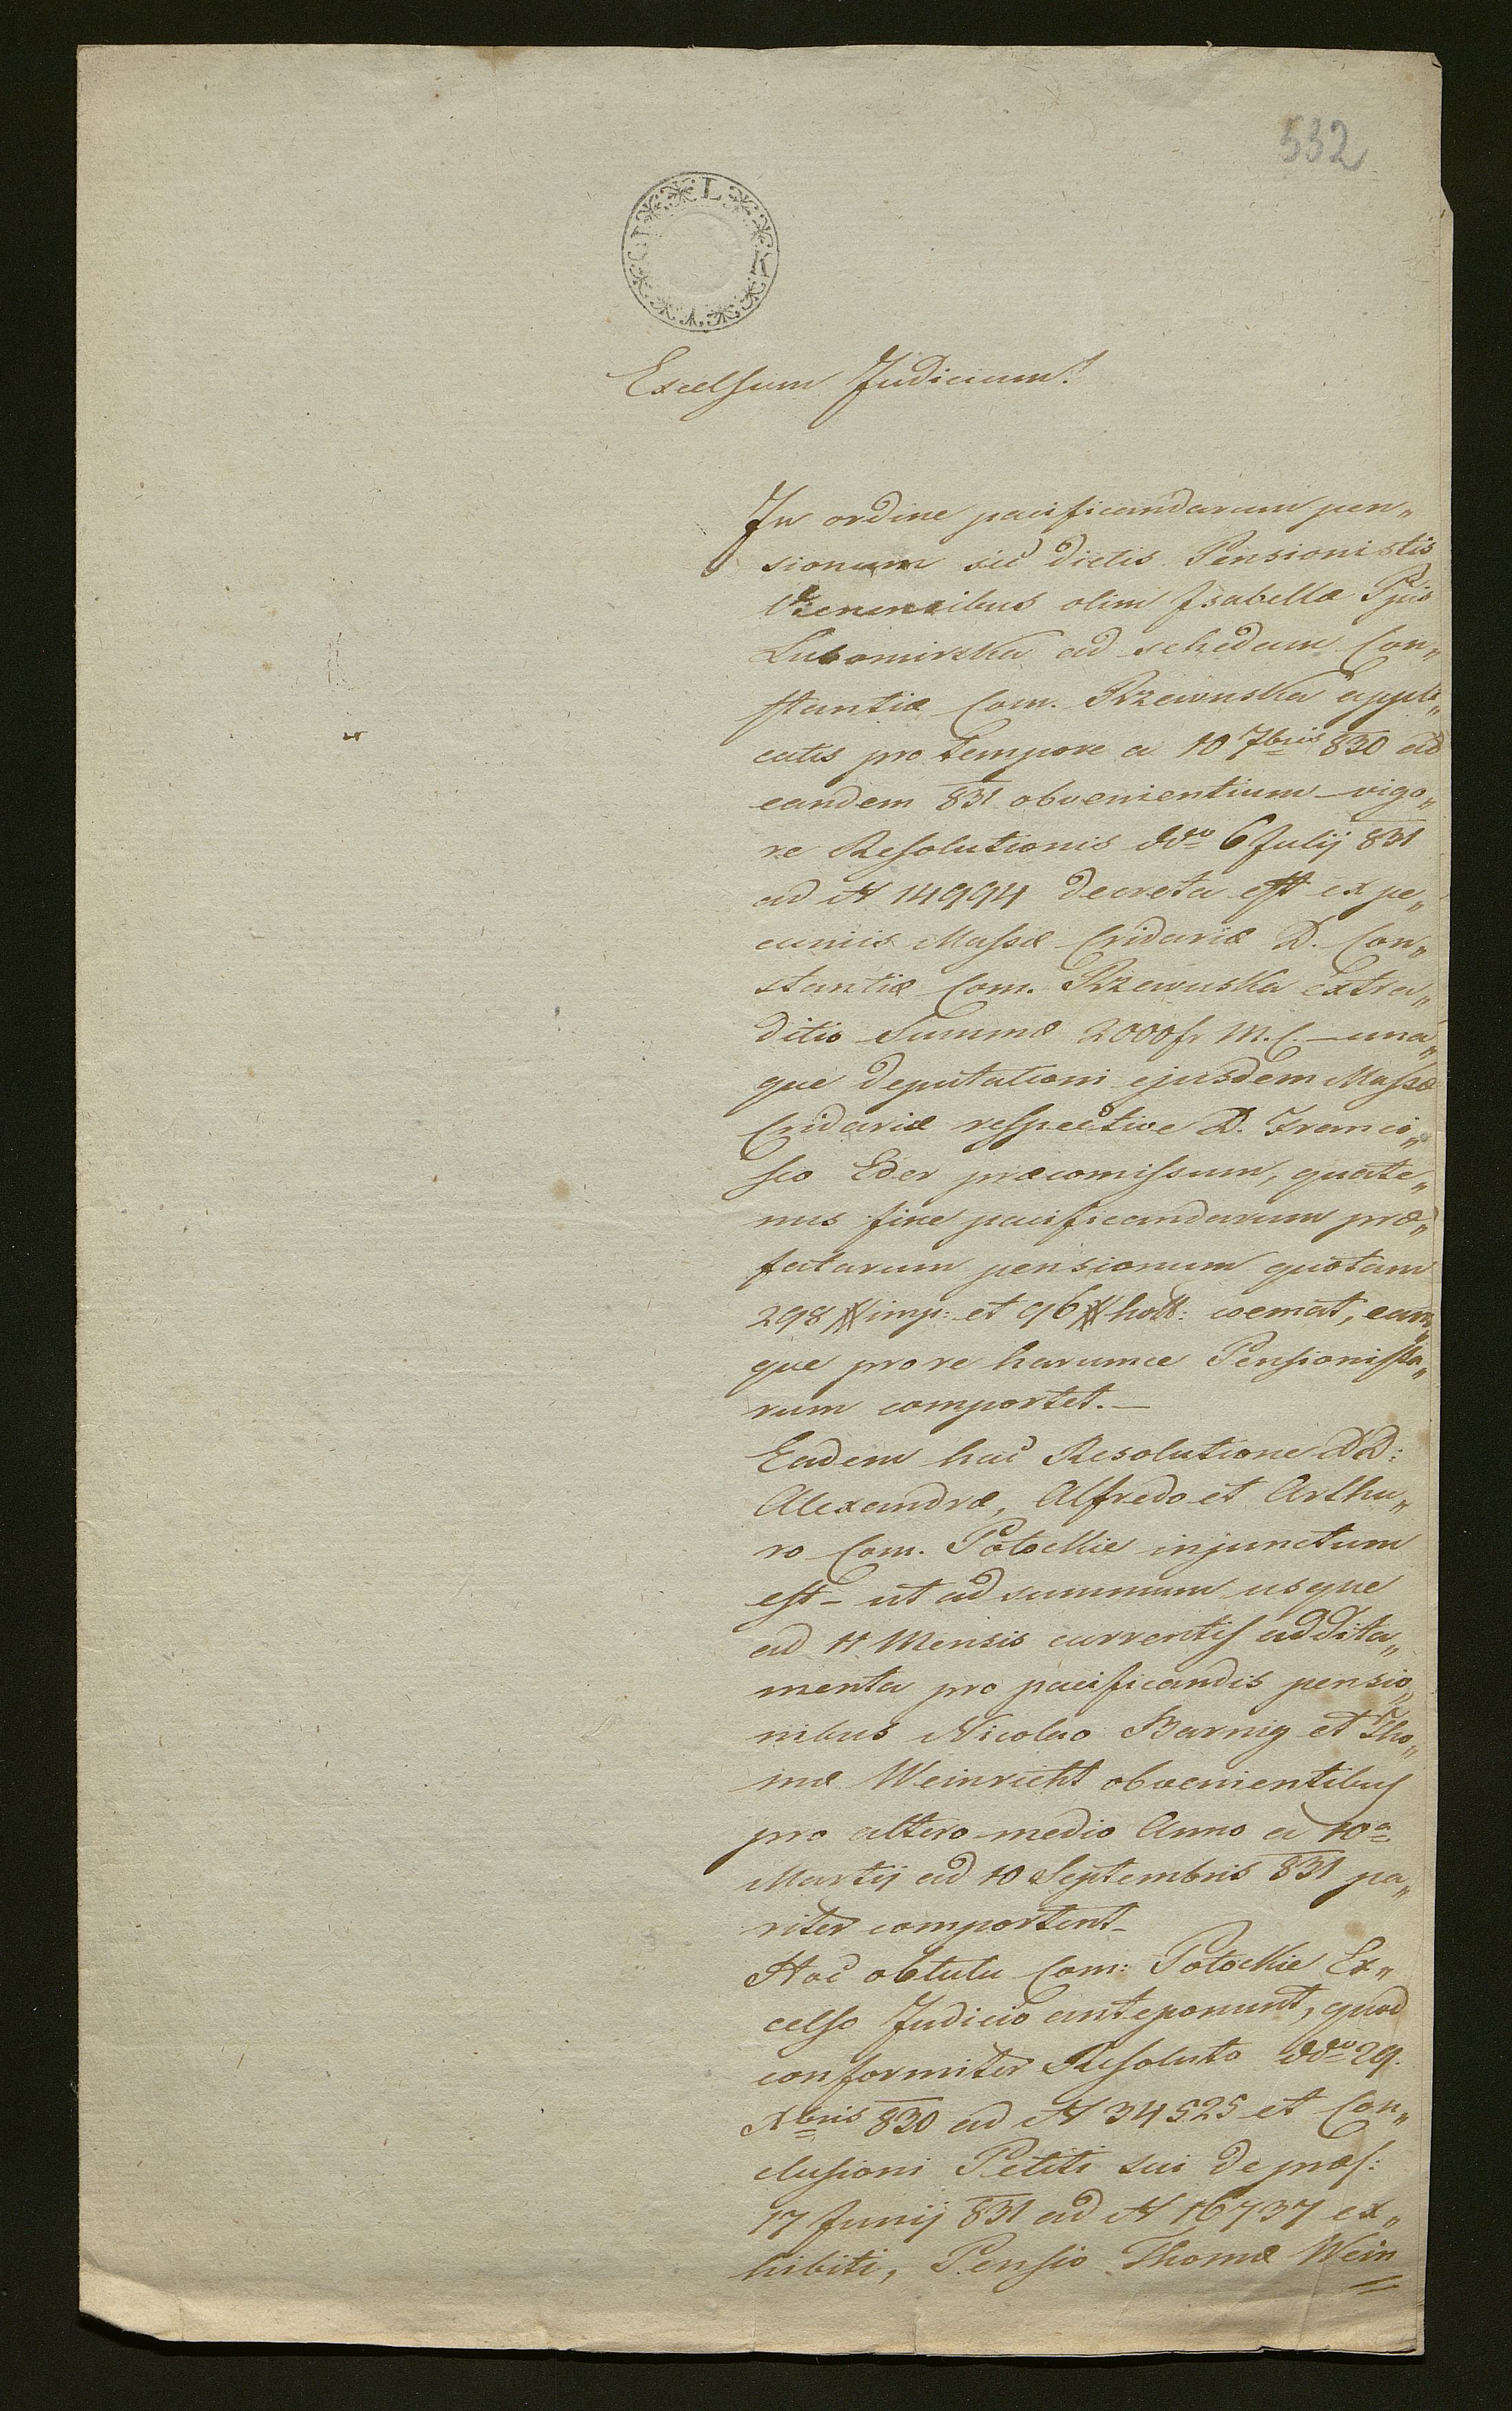 532
L K
Excelsum Judicium!
In ordine pacificandarum pen„
sionum sic dictis Pensionistis
Viennensibus olim Isabellæ Ppis
Lubomirska ad schedam Con„
stantiæ Com. Rzewuska appli„
catis pro tempore a 10 7bris 830 ad
eandem 831 obvenientium vigo„
re Resolutionis ddto 6 Julij 831
ad N 14994 decreta est ex pe„
cuniis Massæ Cridariæ D. Con„
stantiæ Com. Rzewuska Extra„
ditio Summæ 2000 fr M.C. – una„
que deputationi ejusdem Massæ
Cridariæ respective D. Franci„
sco Eder præcomissum, quate„
nus fine pacificandarum præ„
fatarum pensionum quotam
298 # imp: et 96 # holl: coemat, eam„
que pro re harumce Pensionista„
rum comportet. –
Eadem hac Resolutione DD:
Alexandræ, Alfredo et Arthu„
ro Com. Potockie injunctum
est – ut ad summum usque
ad 11 Mensis currentis addita„
menta pro pacificandis pensio„
nibus Nicolao Barnig et Tho„
mæ Weinricht obvenientibus
pro altero medio Anno a 10a
Martij ad 10 Septembris 831 pa„
riter comportent –
Hoc obtutu Com: Potockie Ex„
celso Judicio anteponunt, quod
conformiter Resoluto ddto 29.
Xbris 830 ad N 34525 et Con„
clusioni Petiti sui de præs:
17 Junij 831 ad N 16737 ex„
hibiti, Pensio Thomæ Wein